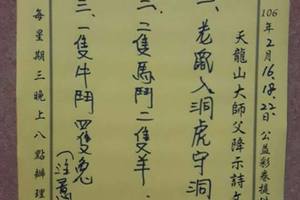 106年2月16.18.22.公益彩卷提
天龍山大師父降示詩文
一、老鼠入洞虎守洞
二、二隻馬鬥二隻羊.
三、一隻牛鬥四隻兔
(注意
每星期三晚上八點辦理